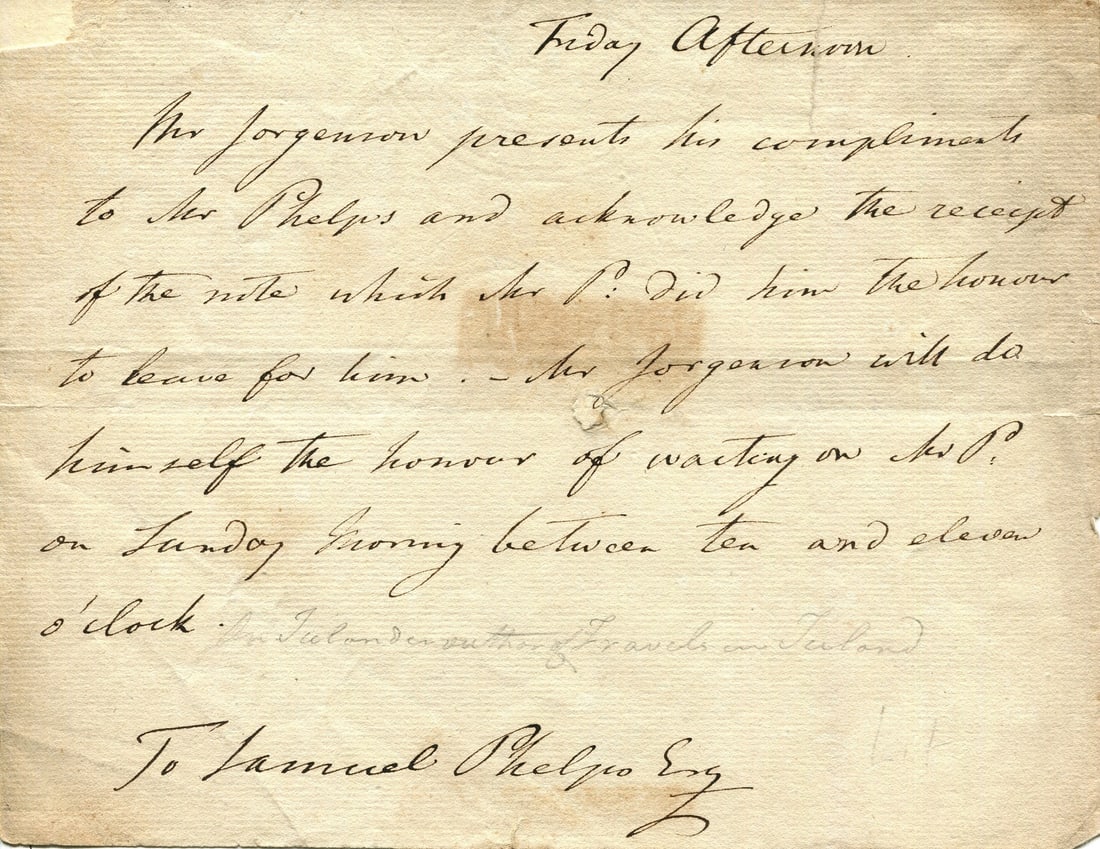 Friday Afternoon
Mr Jorgenson presents his compliments
to Mr Phelps and acknowledge the receipt
of the note which Mr P. did him the honour
to leave for him . – Mr Jorgenson will do
himself the honour of waiting on Mr P.
on Sunday Morning between ten and eleven
o'clock .
An Icelander author of Travels in Iceland
To Samuel Phelps Esq